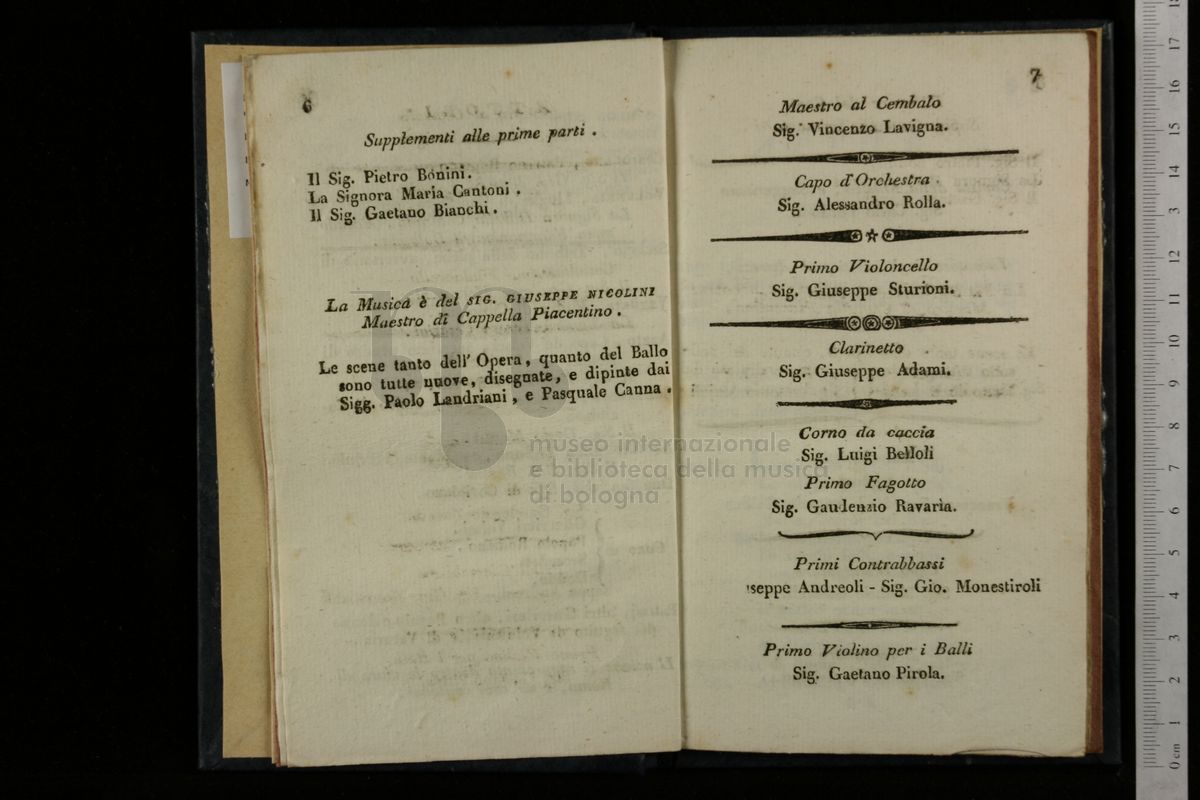 6
Supplementi alle prime parti .
Il Sig. Pietro Bonini.
La Signora Maria Cantoni .
Il Sig. Gaetano Bianchi .
La Musica è del SIG. GIUSEPPE NICOLINI
Maestro di Cappella Piacentino .
Le scene tanto dell' Opera, quanto del Ballo
sono tutte nuove, disegnate, e dipinte dai
Sigg. Paolo Landriani, e Pasquale Canna .
7
Maestro al Cembalo
Sig. Vincenzo Lavigna.
Capo d'Orchestra .
Sig. Alessandro Rolla.
Primo Violoncello
Sig. Giuseppe Sturioni.
Clarinetto
Sig. Giuseppe Adami.
Corno da caccia
Sig. Luigi Belloli
Primo Fagotto
Sig. Gaudenzio Ravarìa.
Primi Contrabbassi
seppe Andreoli - Sig. Gio. Monestiroli
Primo Violino per i Balli
Sig. Gaetano Pirola.
museo internazionale
e biblioteca della musica
di bologna
0 cm 1 2 3 4 5 6 7 8 9 10 11 12 13 14 15 16 17 18